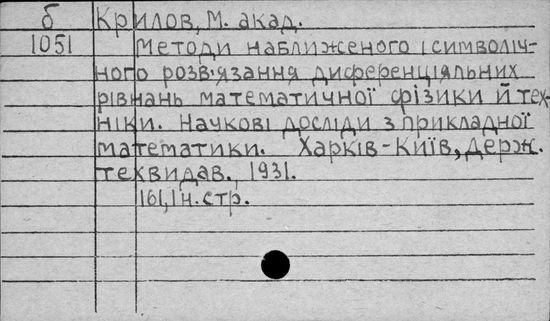 б Крилов, М. акад.
1051 Методи наближеного і символіч-
ного розв'язання диференціяльних
рівнань математичної фізики й тех-
ніки. Наукові досліди з прикладної
математики. Харків-Київ, Держ.
техвидав., 1931.
161, 1 н. стр.